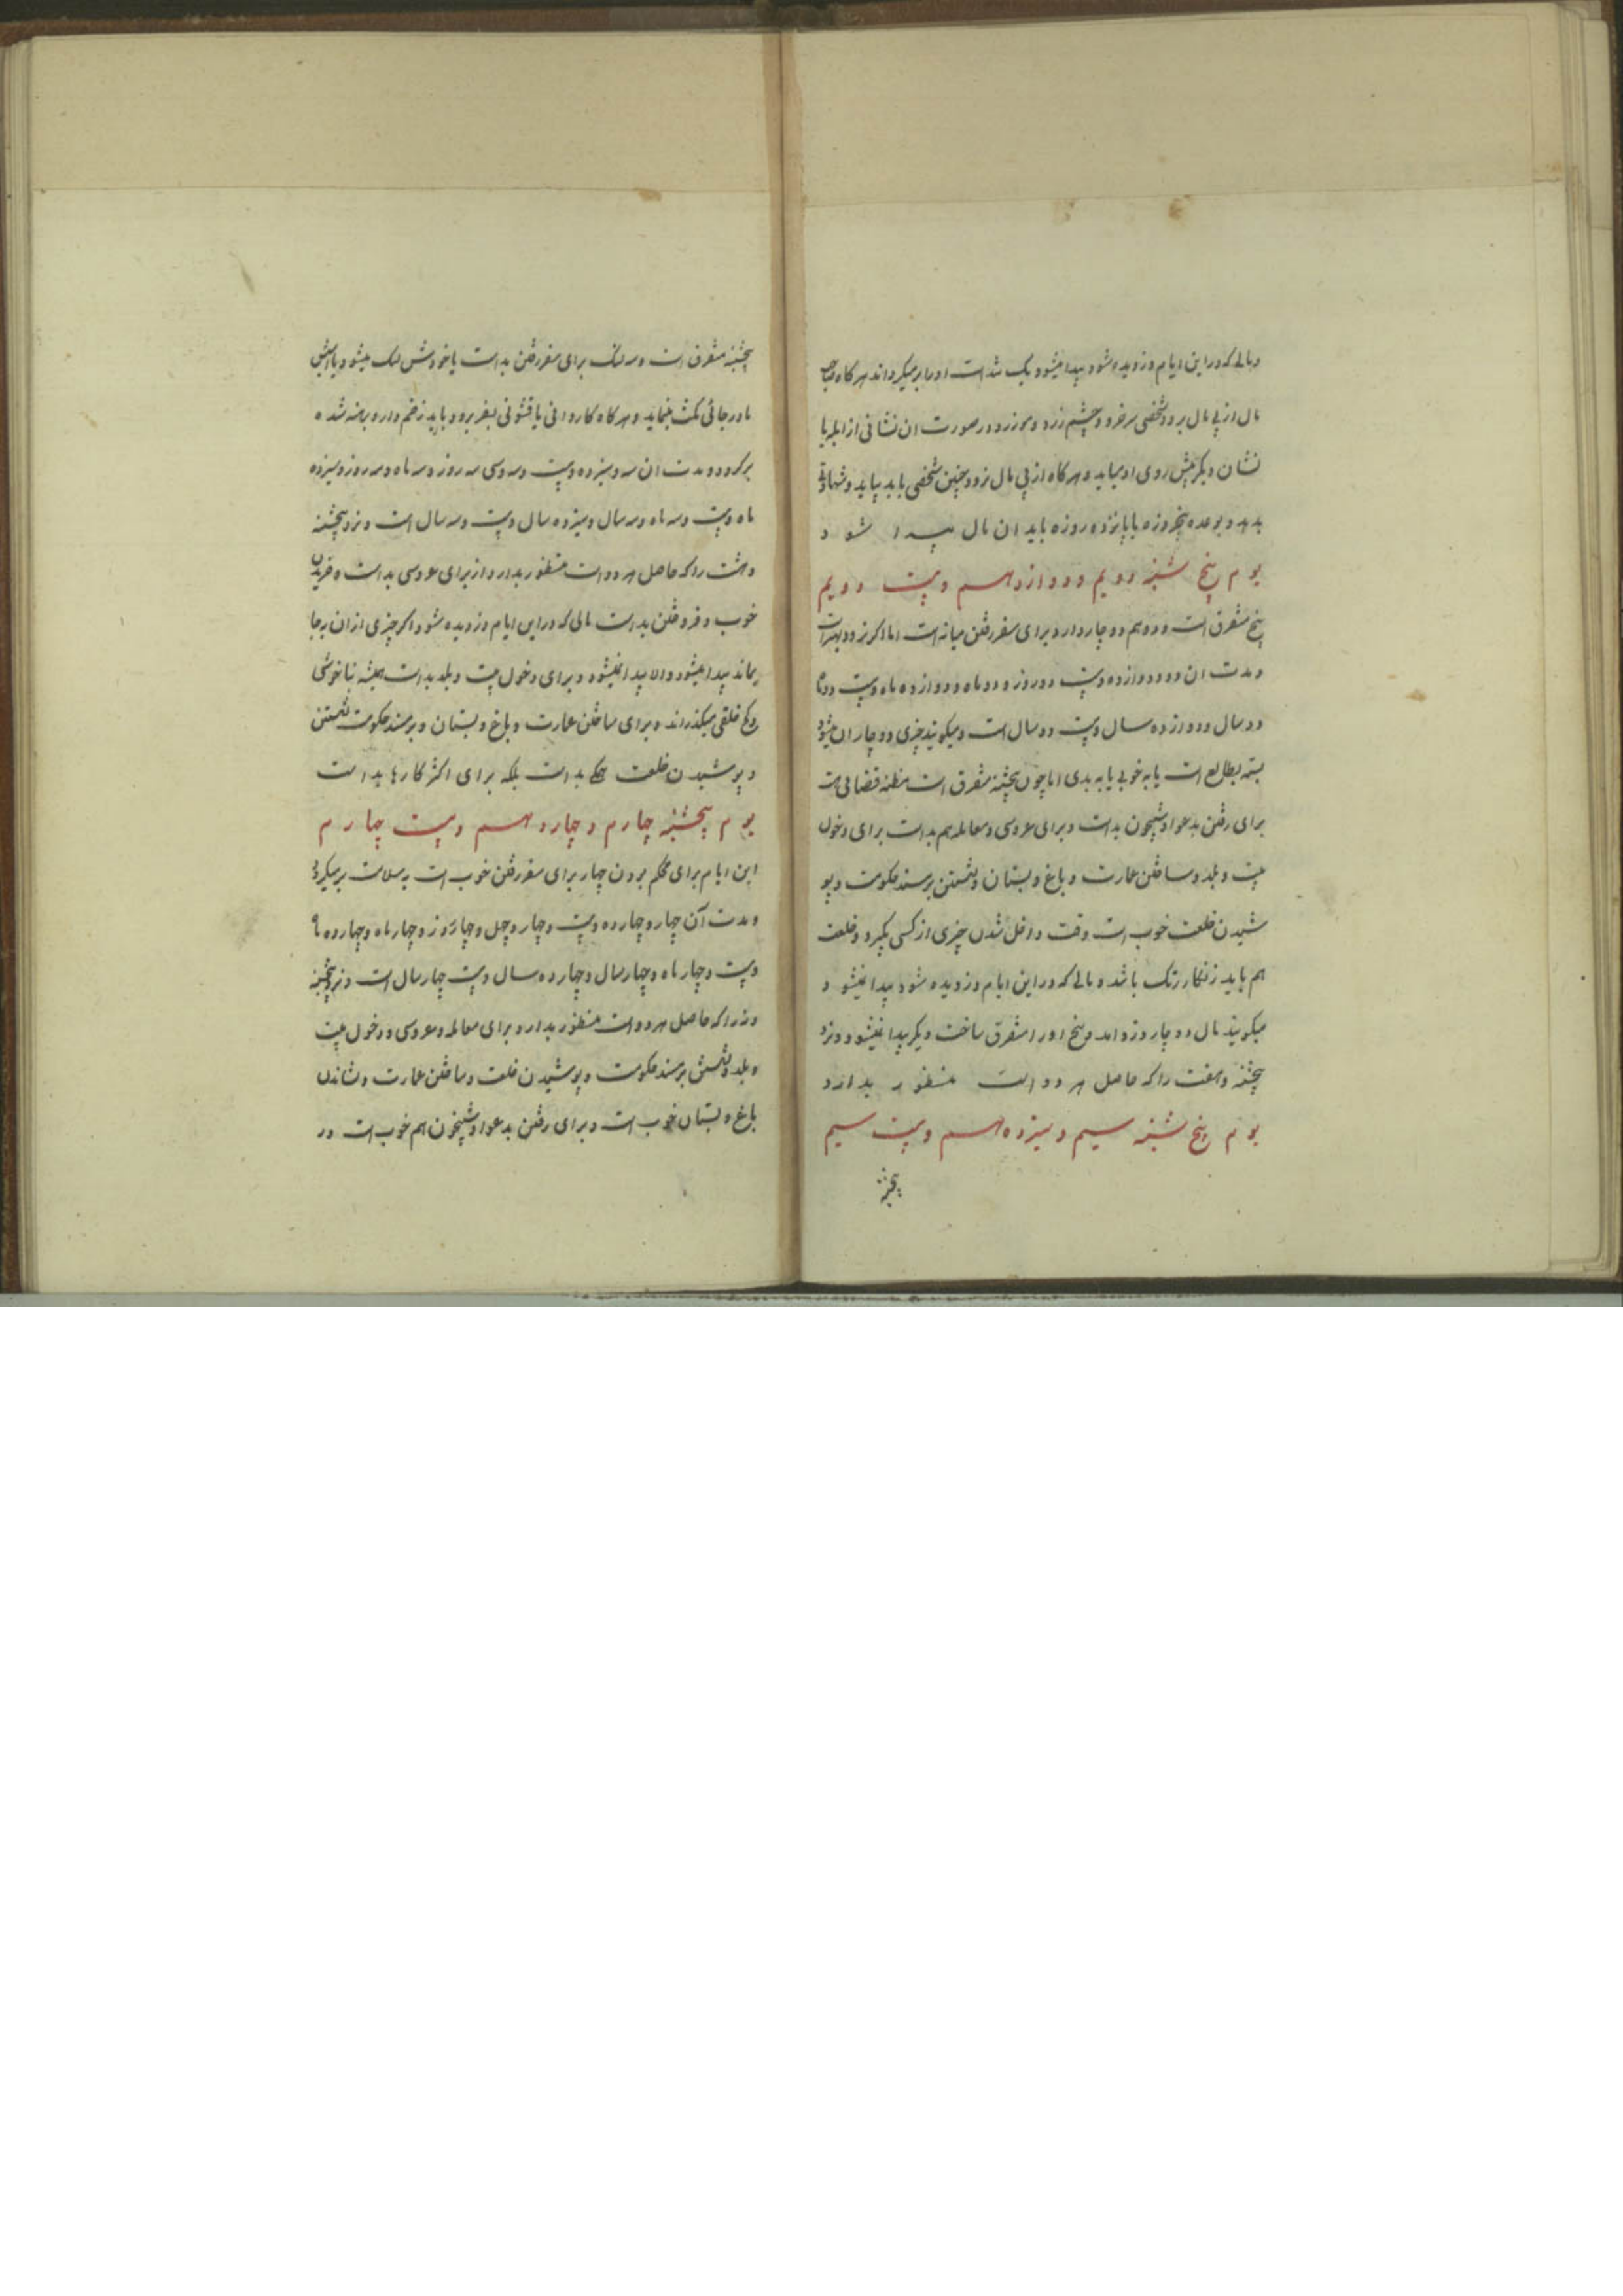 و مالی که در این ایام دزدیده شود پیدا میشود یک شد است او را بر میکرداند هرکاه صاحب
مال از پی مال برود شخصی سرخ و چشم زرد و موزرد و در صورت ان نشانی از ابله یا
نشان دیکر پیش روی او میاید و هرکاه از پی مال نرود چنین شخصی باید بیاید و شهادت
بدهد و بوعده پنجروزه یا پانزده روزه باید ان مال پیدا شود
یوم پنج شنبه دویم و دوازدهم و بیست دویم
پنج متفرق است و دو هم دوچار دارد برای سفر رفتن میانه است اما اکر نرود بهتر است
و مدت ان دو و دوازده و بیست دو روز و دو ماه و دوازده ماه و بیست دو ماه
دو سال و دوازده سال و بیست دو سال است و میکویند چیزی دوچار ان میشود
بسته بطالع است یا به خوبی یا به بدی اما چون پنجشنبه متفرق است مظنه قضائی است
برای رفتن بدعوا و شبیخون بد است و برای عروسی و معامله هم بد است برای دخول
بیت و بلد و ساختن عمارت و باغ و بستان و نشستن بر مسند حکومت و پو
شیدن خلعت خوب است وقت داخل شدن چیزی از کسی بکیرد و خلعت
هم باید زنکار رنک باشد و مالی که در این ایام دزدیده شود پیدا نمیشود
میکویند مال دوچار دزد آمد و پنج او را متفرق ساخت دیکر پیدا نمیشود و نزد
پنجشنبه و هفت را که حاصل هر دو است منظور بدارد
یوم پنج شنبه سیم و سیزدهم و بیست سیم
پنجشنبه
پنجشنبه متفرق است و سه لنک برای سفر رفتن بد است یا خودش لنک میشود یا اسبش
یا در جائی مکث مینماید و هرکاه کاروانی یا قشونی بسفر برود باید زخم دار و برهنه شده
برکردد و مدت ان سه و سیزده و بیست و سه و سی سه روز و سه ماه و سه روز و سیزده
ماه و بیست و سه ماه و سه سال و سیزده سال و بیست و سه سال است و نزد پنجشنبه
و هشت را که حاصل هر دو است منظور بدارد از برای عروسی بد است و خریدن
خوب و فروختن بد است مالی که در این ایام دزدیده شود اکر چیزی از ان به جا
بماند پیدا میشود و الا پیدا نمیشود و برای دخول بیت و بلد بد است همیشه بناخوشی
و کج خلقی میکذراند و برای ساختن عمارت و باغ و بستان و بر مسند حکومت نشستن
و پوشیدن خلعت همکی بد است بلکه برای اکثر کارها بد است
یوم پنجشنبه چهارم و چهاردهم و بیست چهارم
این ایام برای محکم بودن چهار برای سفر رفتن خوب است به سلامت برمیکردد
و مدت آن چهار و چهارده و بیست و چهار و چهل و چهار روز و چهار ماه و چهارده ماه
و بیست و چهار ماه و چهار سال و چهارده سال و بیست چهار سال است و نزد پنجشنبه
و نه را که حاصل هر دو است منظور بدارد برای معامله و عروسی و دخول بیت
و بلد و نشستن بر مسند حکومت و پوشیدن خلعت و ساختن عمارت و نشاندن
باغ و بستان خوب است و برای رفتن بدعوا و شبیخون هم خوب است در